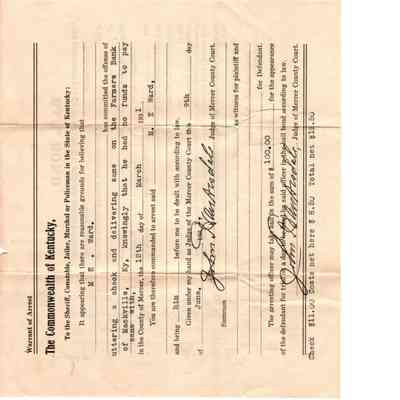 Warrant of Arrest
The Commonwealth of Kentucky,
To the Sheriff, Constable, Jailer, Marshal or Policeman in the State of Kentucky:
It appearing that there are reasonable grounds for believing that
M E . Ward.
has committed the offense of
uttering a check and delivering same on the Farmers Bank
of Mackville, Ky. knowingly that he had no funds to pay
same with.
in the County of Mercer, the 12th. day of March 1931
You are therefore commanded to arrest said M. E Ward.
and bring him before me to be dealt with according to law.
Given under my hand as Judge of the Mercer County Court this 9th day
of June,
Judge of Mercer County Court.
Summon as witness for plaintiff and
for Defendant.
The arresting officer may take bail in the sum of $ 100.00 for the appearance
of the defendant for trial said officer bond according to law.
Judge of Mercer County Court.
Check $11.00 Costs net here $ 8.80 Total net